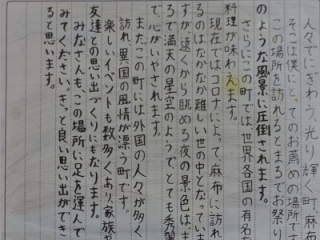 人々でにぎわう、光り輝く町、麻布
そこは僕にとってのお薦めの場所です
この場所を訪れるとまるでお祭り
のような風景に圧倒されます。
さらにこの町では世界各国の有名な
料理が味わえます。
現在ではコロナによって、麻布に訪れ
るのはなかなか難しい世の中となっていま
すが遠くから眺める夜の景色は、ま
るで満天の星空のようでとても秀麗
で、心がいやされます。
またこの町には外国の人々が多く
訪れ異国の風情が漂う町です。
楽しいイベントも数多くあり、家族や
友達との思い出づくりにもなります。
みなさんも、この場所に足を運んで
みてください。きっと良い思い出ができ
ると思います。